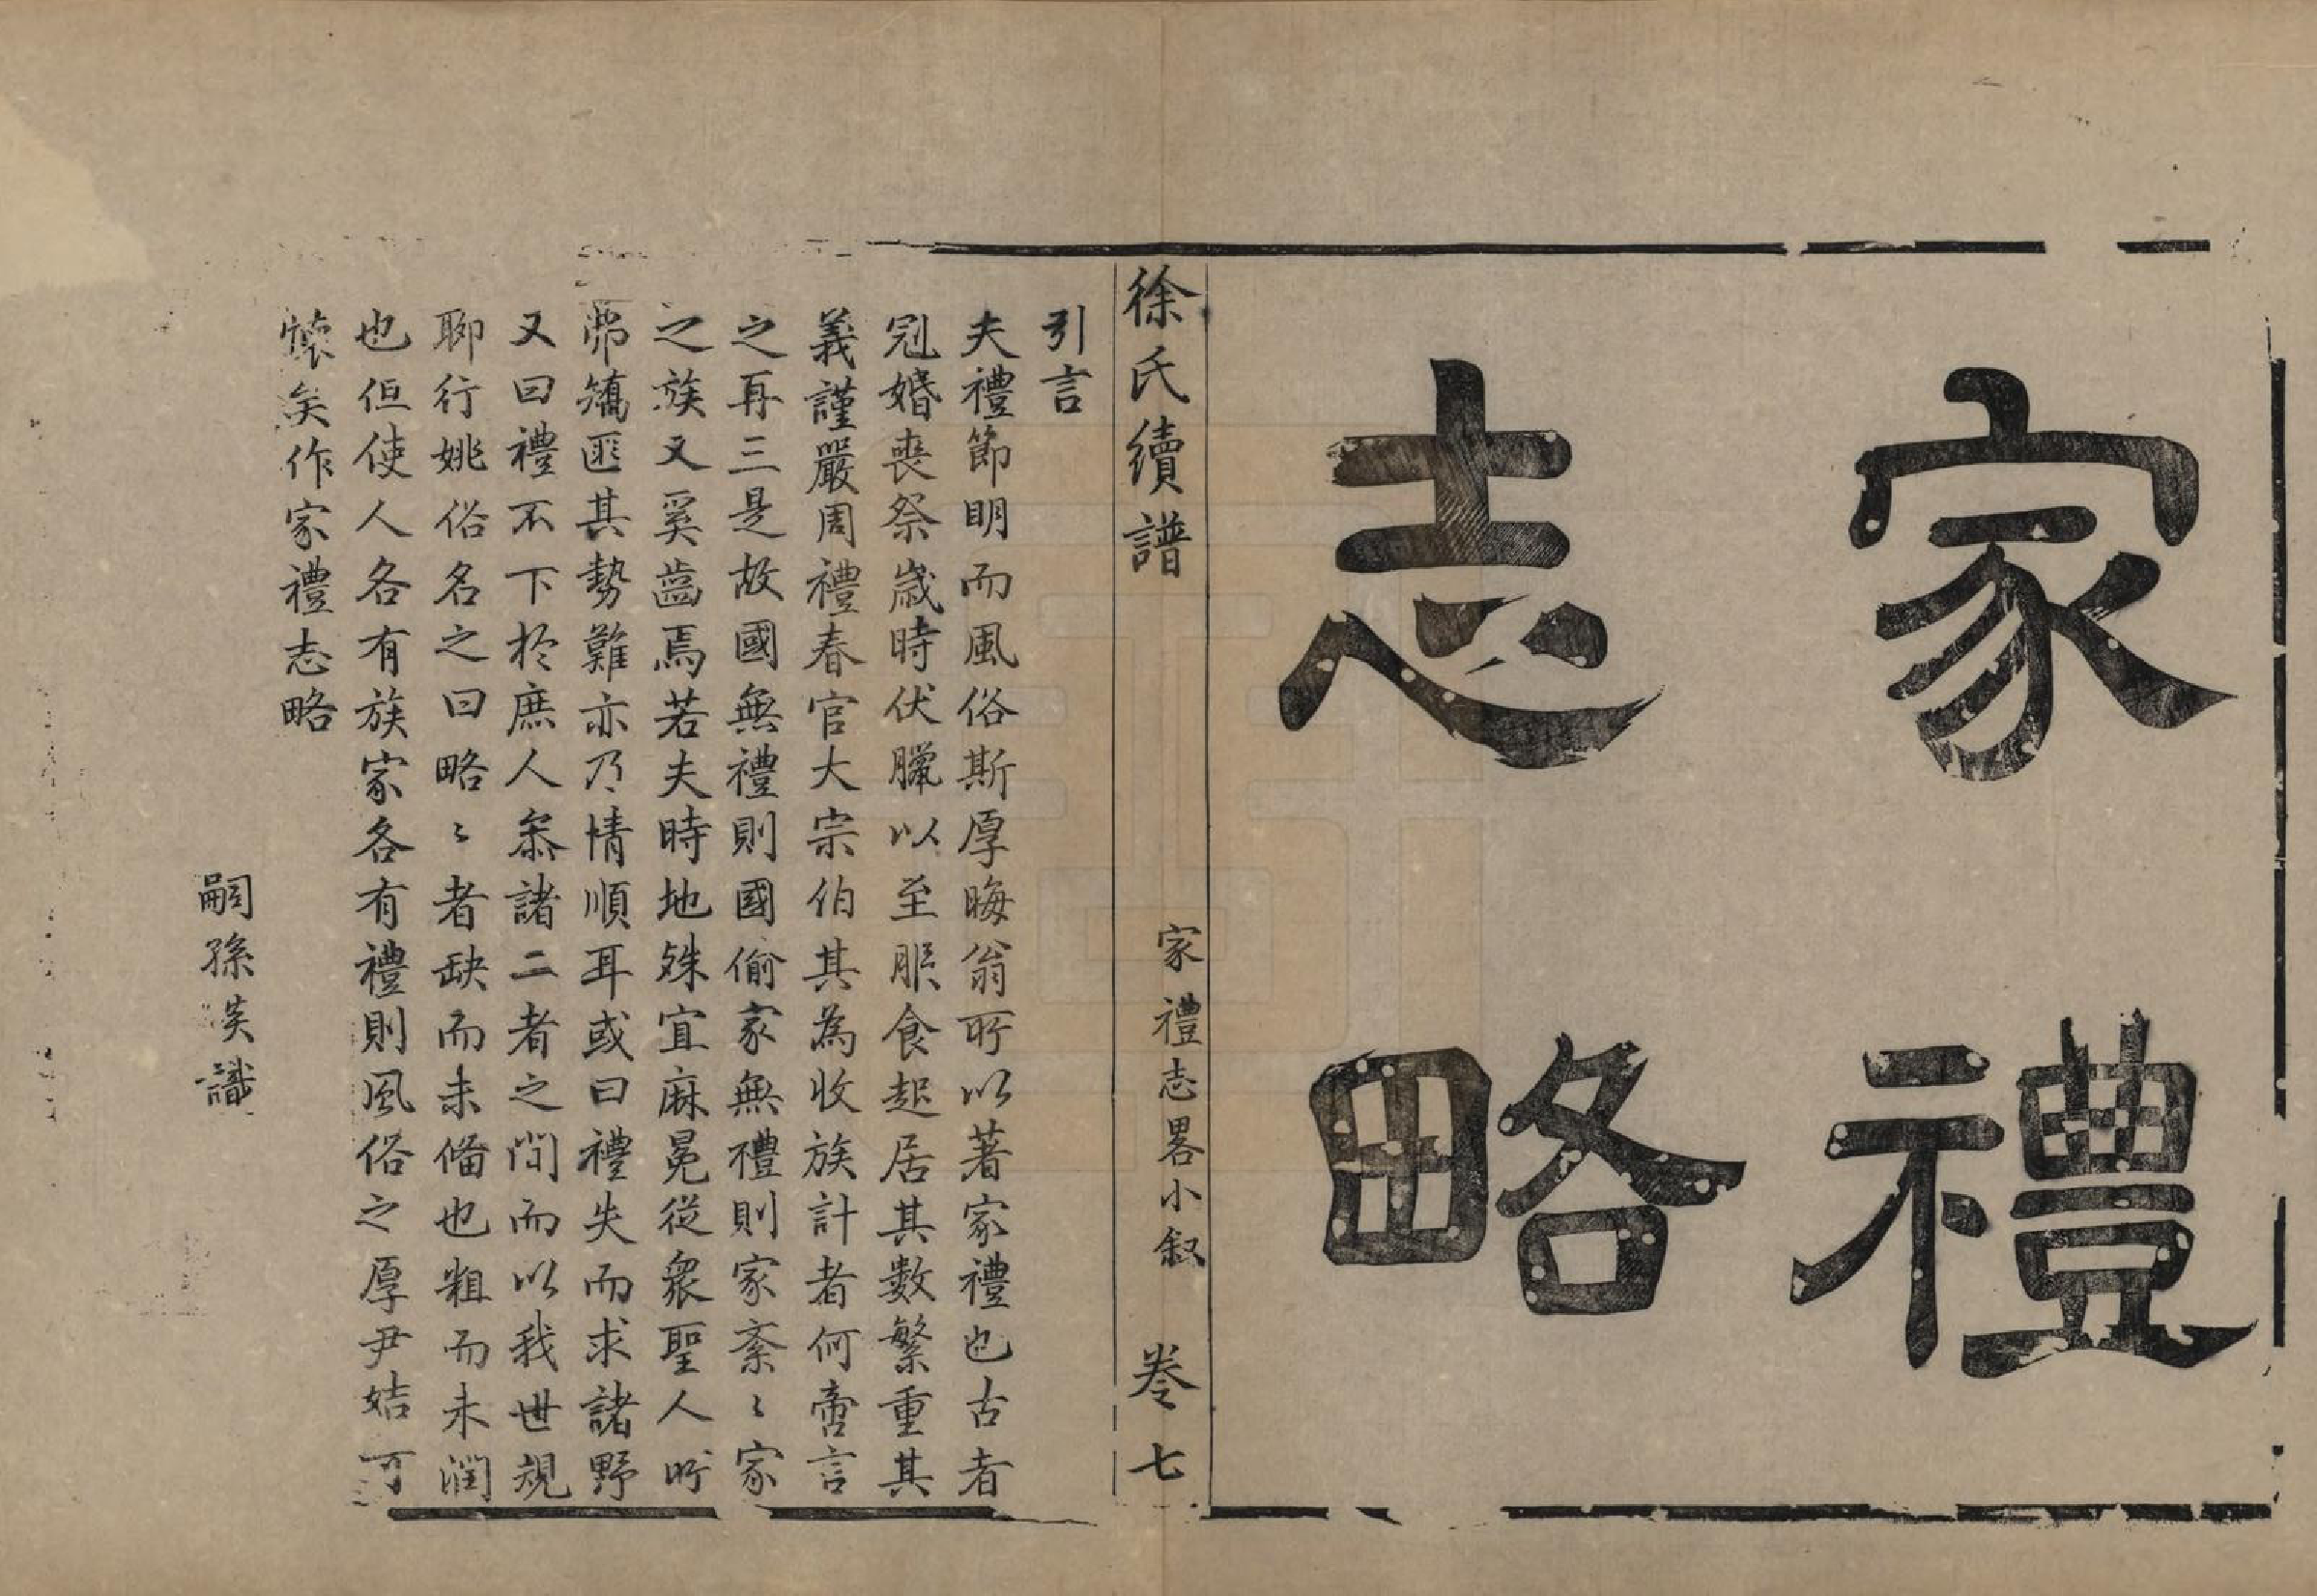 家禮
志略
徐氏續譜 家禮志畧小叙 卷七
引言
夫禮節明而風俗斯厚晦翁所以著家禮也古者
冠婚喪祭歲時伏臘以至服食起居其數繁重其
義謹嚴周禮春官大宗伯其為收族計者何啻言
之再三是故國無禮則國偷家無禮則家紊〻家
之族又奚齒焉若夫時地殊宜麻冕從衆聖人所
弗矯匪其勢難亦乃情順耳或曰禮失而求諸野
又曰禮不下於庶人叅諸二者之間而以我世規
聊行姚俗名之曰略〻者缺而未備也粗而未潤
也但使人各有族家各有禮則風俗之厚尹姞可
懷矣作家禮志略
嗣孫 識